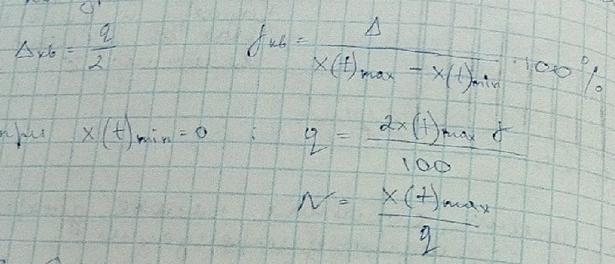 Δкв = q/2    γкв = Δ / (x(t)max − x(t)min) · 100%
при x(t)min = 0 : q = 2x(t)max γ / 100
N = x(t)max / q